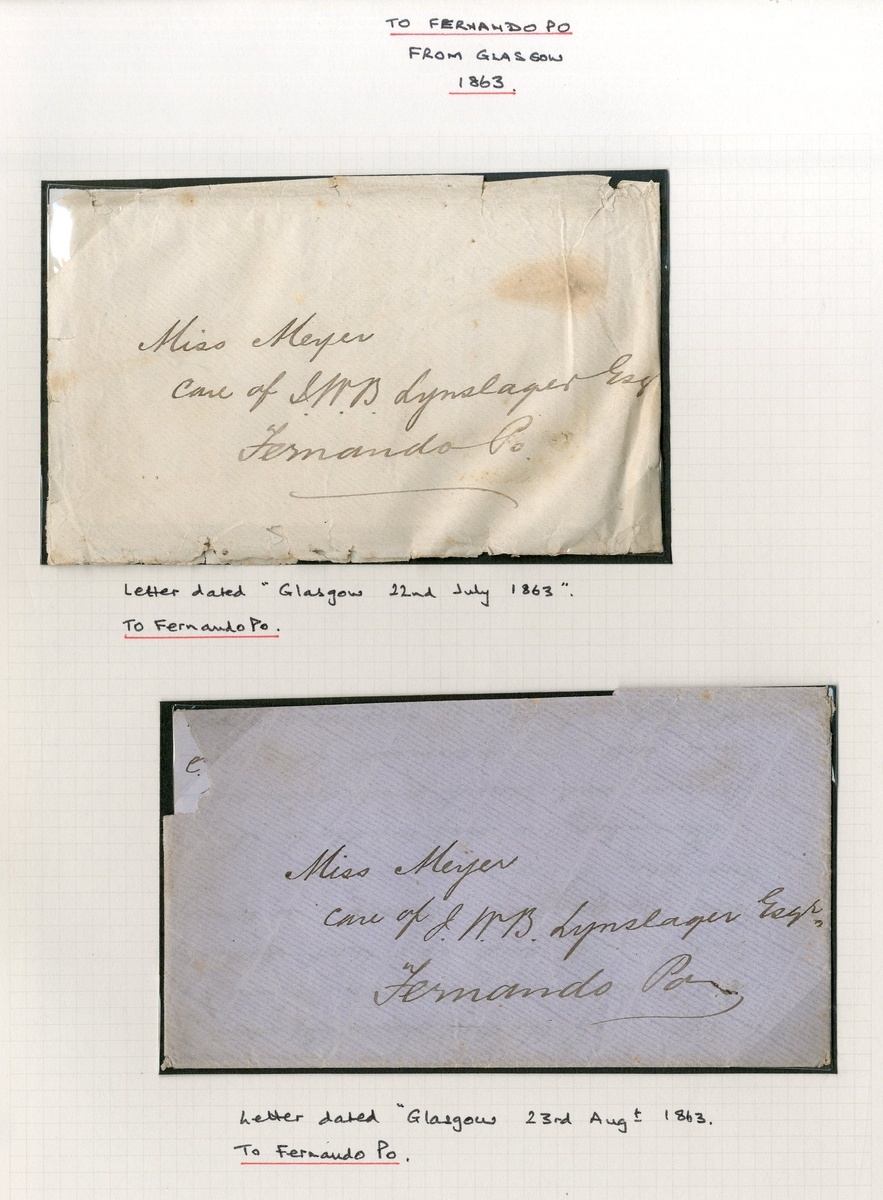 TO FERNANDO PO
FROM GLASGOW
1863.
Miss Meyer
Care of J.W.B. Lynslager Esq
Fernando Po
Letter dated "Glasgow 22nd July 1863".
To Fernando Po.
C.
Miss Meyer
Care of J. W. B. Lynslager Esqr
Fernando Po
Letter dated "Glasgow 23rd Augt 1863.
To Fernando Po.